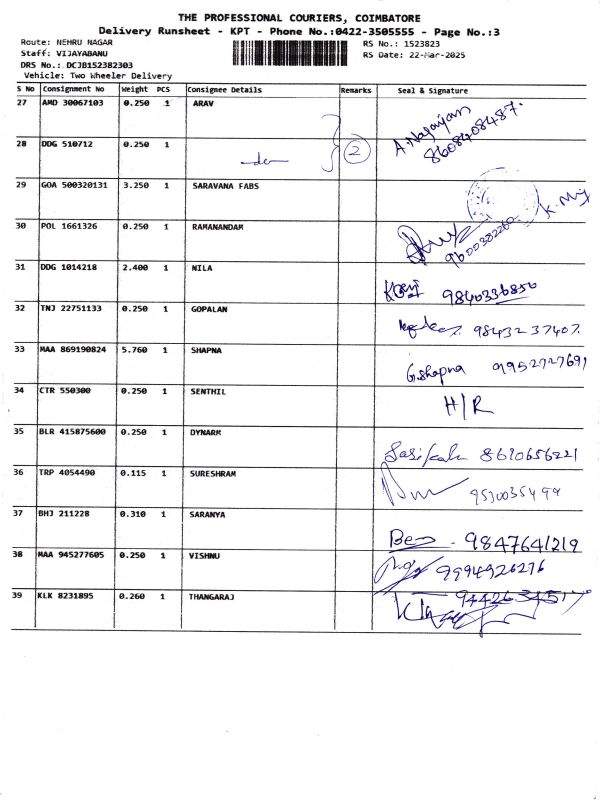 THE PROFESSIONAL COURIERS, COIMBATORE
Delivery Runsheet - KPT - Phone No.:0422-3505555 - Page No.:3
Route: NEHRU NAGAR
Staff: VIJAYABANU
DRS No.: DCJB152382303
Vehicle: Two Wheeler Delivery
RS No.: 1523823
RS Date: 22-Mar-2025
S No Consignment No Weight PCS Consignee Details Remarks Seal & Signature
27 AMD 30067103 0.250 1 ARAV
A. Nagarajan
8608408487.
28 DDG 510712 0.250 1 2
29 GOA 500320131 3.250 1 SARAVANA FABS
30 POL 1661326 0.250 1 RAMANANDAM
9600382260
31 DDG 1014218 2.400 1 NILA 9840336850
32 TNJ 22751133 0.250 1 GOPALAN 98432 37407
33 MAA 869190824 5.760 1 SHAPNA G.shapna 9952727691
34 CTR 550300 0.250 1 SENTHIL H/R
35 BLR 415875600 0.250 1 DYNARM Sasikala 8610656221
36 TRP 4054490 0.115 1 SURESHRAM
37 BHJ 211228 0.310 1 SARANYA 9847641219
38 MAA 945277605 0.250 1 VISHNU 9994926276
39 KLK 8231895 0.260 1 THANGARAJ 9442634517